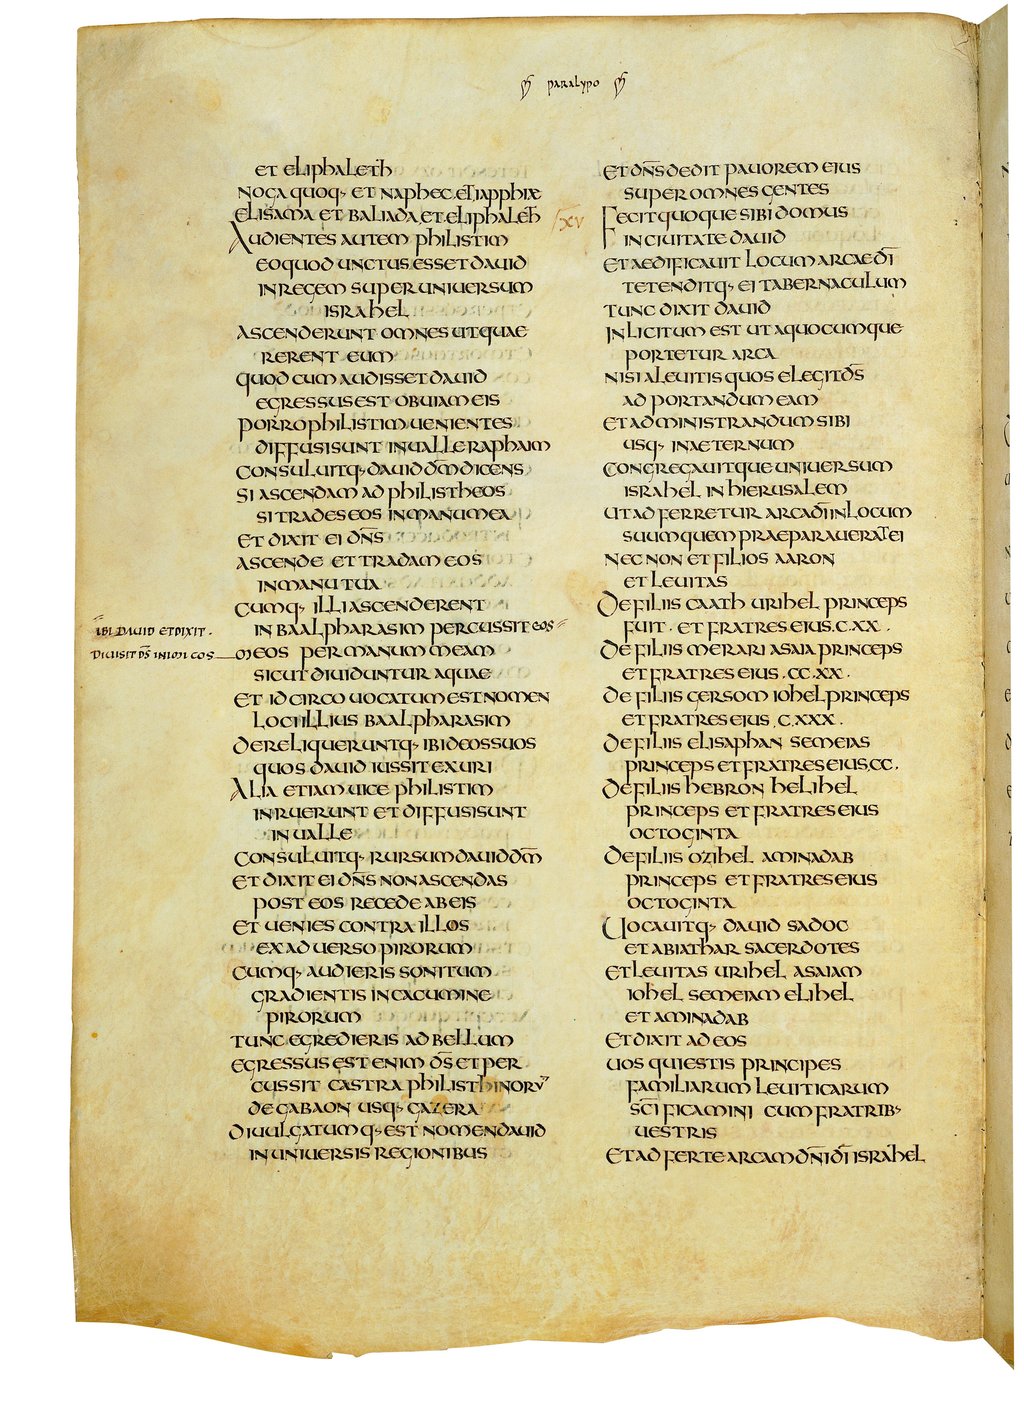 paralypo
ET ELIPHALETH
NOGA QUOQ· ET NAPHEC· ET IAPPHIAE
ELISAMA ET BALIADA ET ELIPHALETH
AUDIENTES AUTEM PHILISTIM
EO QUOD UNCTUS ESSET DAUID
IN REGEM SUPER UNIUERSUM
ISRAHEL
ASCENDERUNT OMNES UT QUAE
RERENT EUM
QUOD CUM AUDISSET DAUID
EGRESSUS EST OBUIAM EIS
PORRO PHILISTIM UENIENTES
DIFFUSI SUNT IN UALLE RAPHAIM
CONSULUITQ· DAUID DM̅ DICENS
SI ASCENDAM AD PHILISTHEOS
SI TRADES EOS IN MANU MEA
ET DIXIT EI DN̅S
ASCENDE ET TRADAM EOS
IN MANU TUA
CUMQ· ILLI ASCENDERENT
IN BAALPHARASIM PERCUSSIT EOS
IBI DAUID ET DIXIT·
DIUISIT DS̅ INIMICOS
MEOS PER MANUM MEAM
SICUT DIUIDUNTUR AQUAE
ET IDCIRCO UOCATUM EST NOMEN
LOCI ILLIUS BAALPHARASIM
DERELIQUERUNTQ· IBI DEOS SUOS
QUOS DAUID IUSSIT EXURI
ALIA ETIAM UICE PHILISTIM
INRUERUNT ET DIFFUSI SUNT
IN UALLE
CONSULUITQ· RURSUM DAUID DM̅
ET DIXIT EI DN̅S NON ASCENDAS
POST EOS RECEDE AB EIS
ET UENIES CONTRA ILLOS
EX ADUERSO PIRORUM
CUMQ· AUDIERIS SONITUM
GRADIENTIS IN CACUMINE
PIRORUM
TUNC EGREDIERIS AD BELLUM
EGRESSUS EST ENIM DS̅ ET PER
CUSSIT CASTRA PHILISTHINORU̅
DE GABAON USQ· GAZERA
DIUULGATUMQ· EST NOMEN DAUID
IN UNIUERSIS REGIONIBUS
ET DN̅S DEDIT PAUOREM EIUS
SUPER OMNES GENTES
XV
FECIT QUOQUE SIBI DOMUS
IN CIUITATE DAUID
ET AEDIFICAUIT LOCUM ARCAE DI̅
TETENDITQ· EI TABERNACULUM
TUNC DIXIT DAUID
INLICITUM EST UT A QUOCUMQUE
PORTETUR ARCA
NISI A LEUITIS QUOS ELEGIT DS̅
AD PORTANDUM EAM
ET AD MINISTRANDUM SIBI
USQ· IN AETERNUM
CONGREGAUITQUE UNIUERSUM
ISRAHEL IN HIERUSALEM
UT ADFERRETUR ARCA DI̅ IN LOCUM
SUUM QUEM PRAEPARAUERAT EI
NEC NON ET FILIOS AARON
ET LEUITAS
DE FILIIS CAATH URIHEL PRINCEPS
FUIT· ET FRATRES EIUS·C·XX·
DE FILIIS MERARI ASAIA PRINCEPS
ET FRATRES EIUS·CC·XX·
DE FILIIS GERSOM IOHEL PRINCEPS
ET FRATRES EIUS·C·XXX·
DE FILIIS ELISAPHAN SEMEIAS
PRINCEPS ET FRATRES EIUS·CC·
DE FILIIS HEBRON HELIHEL
PRINCEPS ET FRATRES EIUS
OCTOGINTA
DE FILIIS OZIHEL AMINADAB
PRINCEPS ET FRATRES EIUS
OCTOGINTA
UOCAUITQ· DAUID SADOC
ET ABIATHAR SACERDOTES
ET LEUITAS URIHEL ASAIAM
IOHEL SEMEIAM ELIHEL
ET AMINADAB
ET DIXIT AD EOS
UOS QUI ESTIS PRINCIPES
FAMILIARUM LEUITICARUM
SCI̅FICAMINI CUM FRATRIB·
UESTRIS
ET ADFERTE ARCAM DN̅I DI̅ ISRAHEL